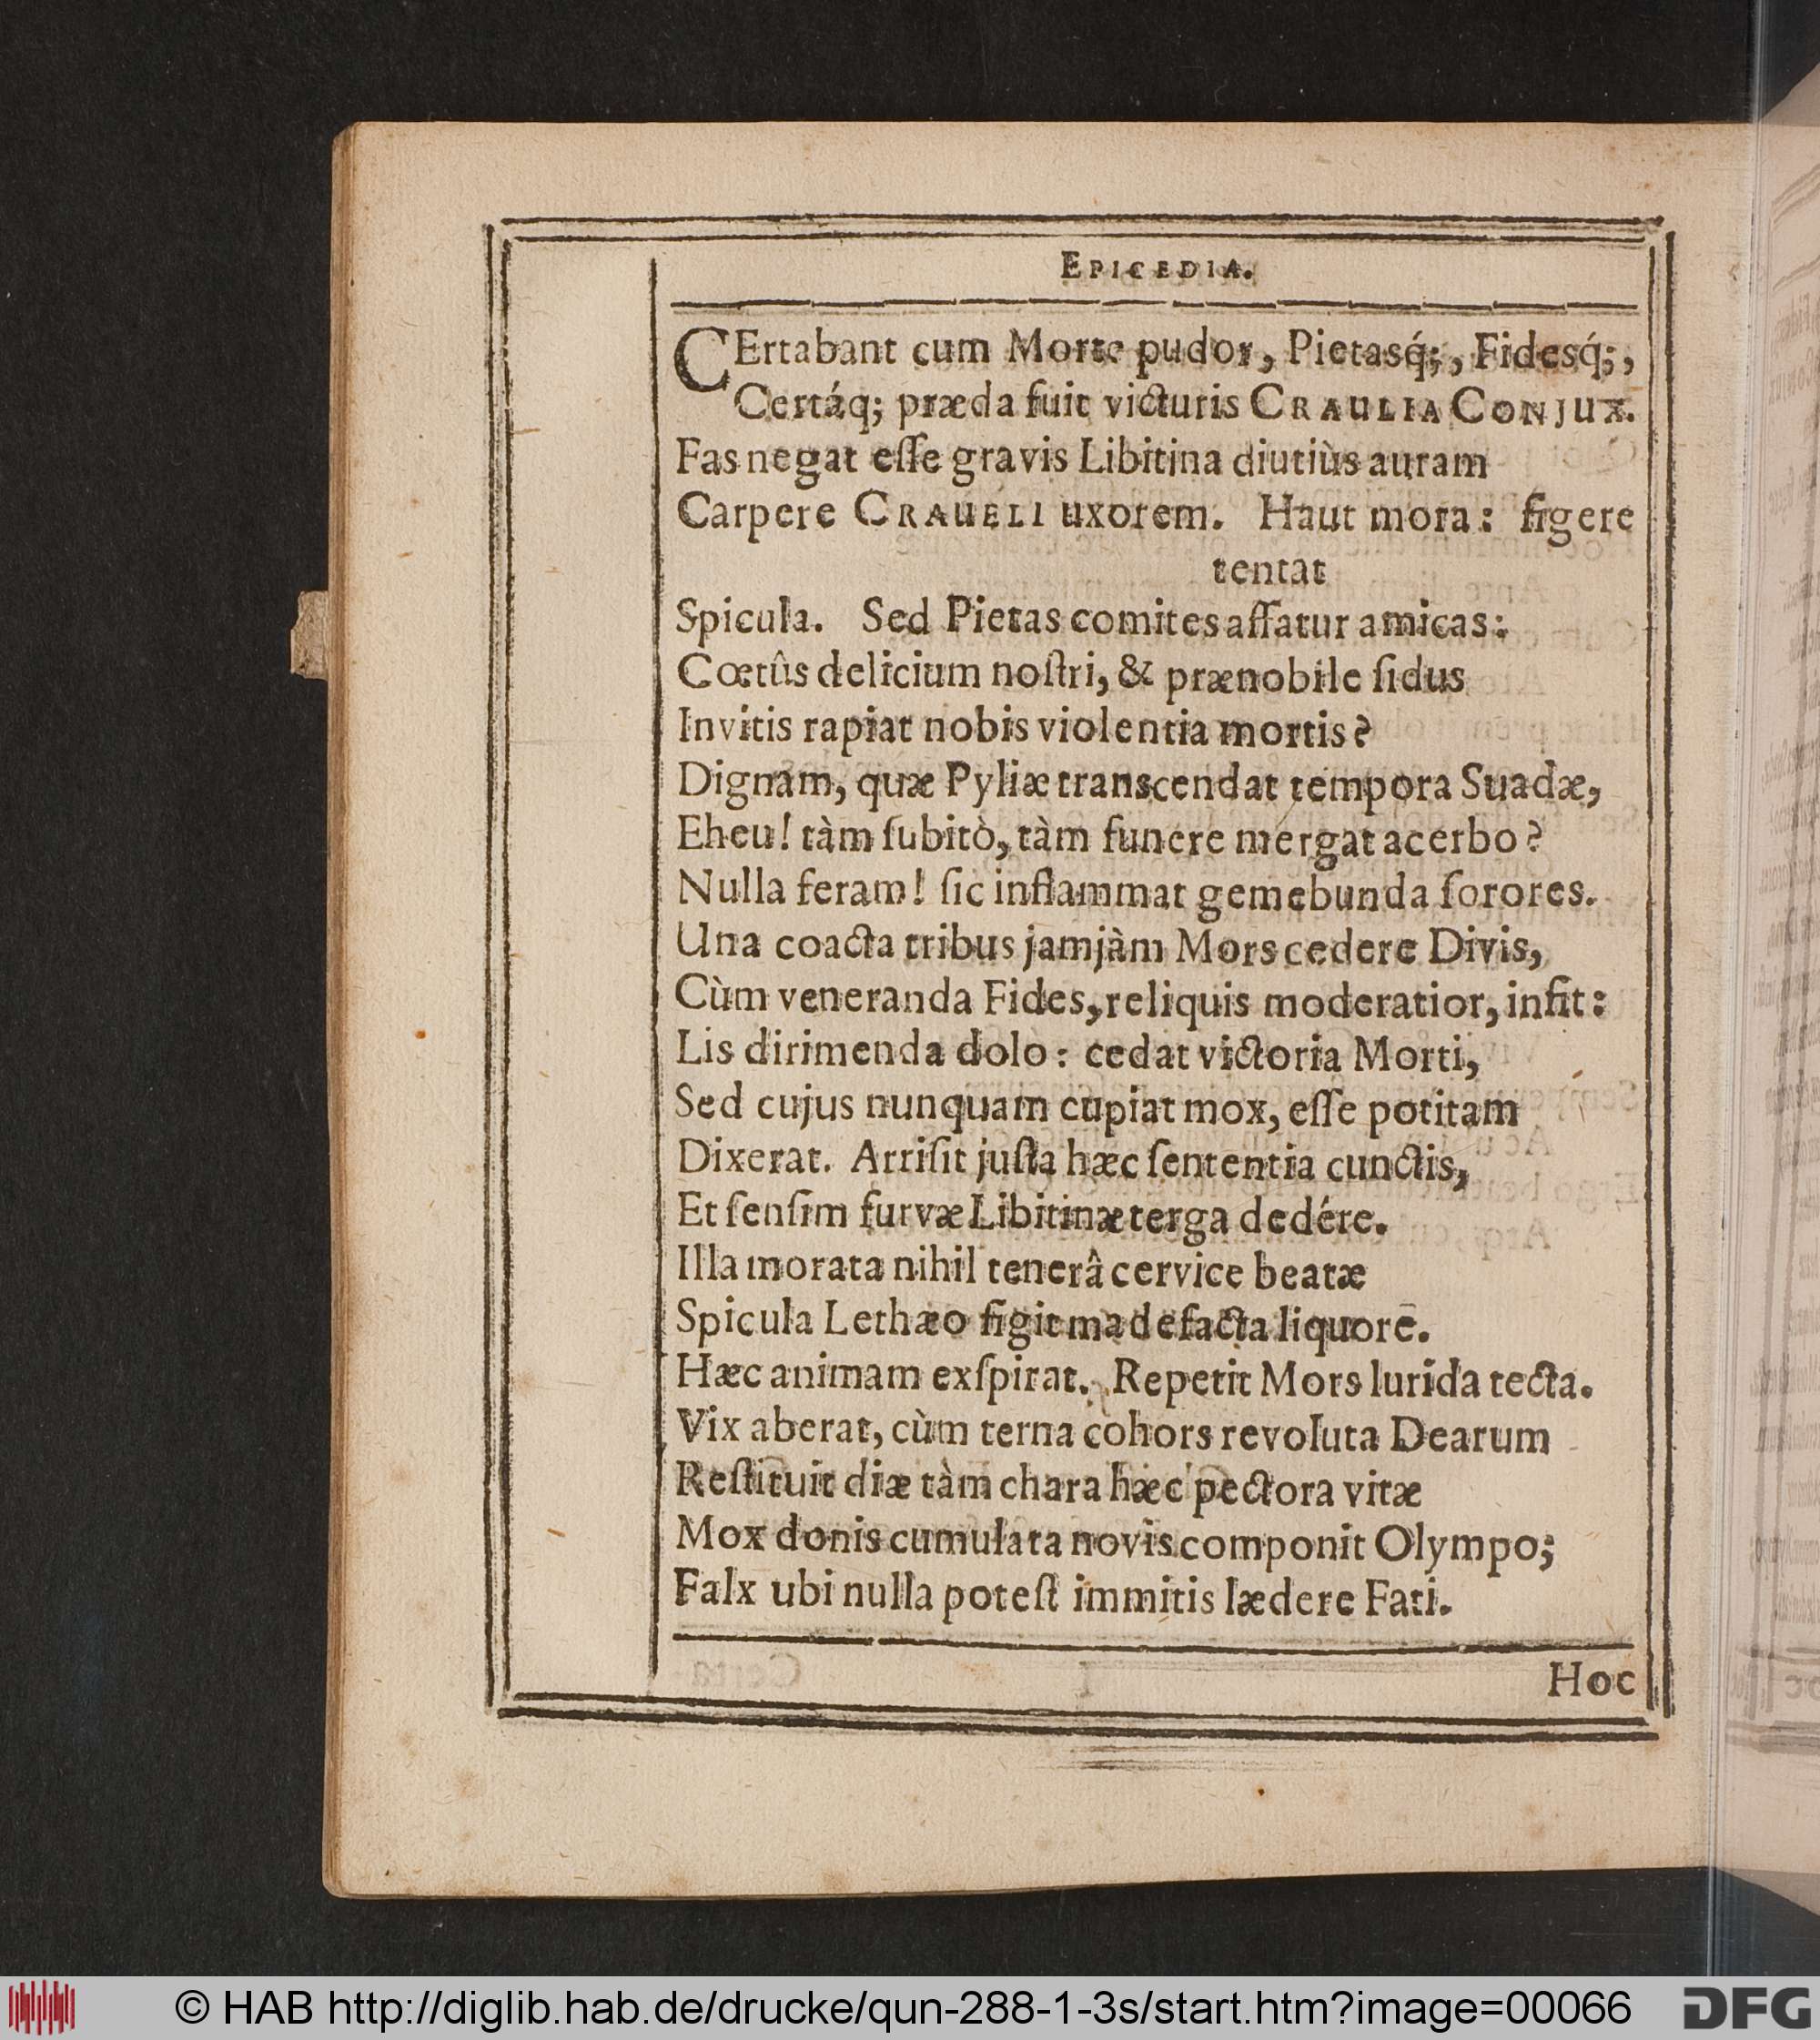 EPICEDIA.
CErtabant cum Morte pudor, Pietasq́;, Fidesq́;,
Certáq; præda fuit victuris CRAULIA CONJUX.
Fas negat eſſe gravis Libitina diutiùs auram
Carpere CRAUELI uxorem. Haut mora: figere
tentat
Spicula. Sed Pietas comites affatur amicas:
Cœtûs delicium noſtri, & prænobile ſidus
Invitis rapiat nobis violentia mortis?
Dignam, quæ Pyliæ transcendat tempora Suadæ,
Eheu! tàm ſubitò, tàm funere mergat acerbo?
Nulla feram! ſic inflammat gemebunda ſorores.
Una coacta tribus jamjàm Mors cedere Divis,
Cùm veneranda Fides, reliquis moderatior, infit:
Lis dirimenda dolo: cedat victoria Morti,
Sed cujus nunquam cupiat mox, eſſe potitam
Dixerat. Arriſit juſta hæc ſententia cunctis,
Et ſenſim furvæ Libitinæ terga dedére.
Illa morata nihil tenerâ cervice beatæ
Spicula Lethæo figit madefacta liquorē.
Hæc animam exſpirat. Repetit Mors lurida tecta.
Vix aberat, cùm terna cohors revoluta Dearum
Reſtituit diæ tàm chara hæc pectora vitæ
Mox donis cumulata novis componit Olympo;
Falx ubi nulla poteſt immitis lædere Fati.
Hoc
© HAB http://diglib.hab.de/drucke/qun-288-1-3s/start.htm?image=00066
DFG